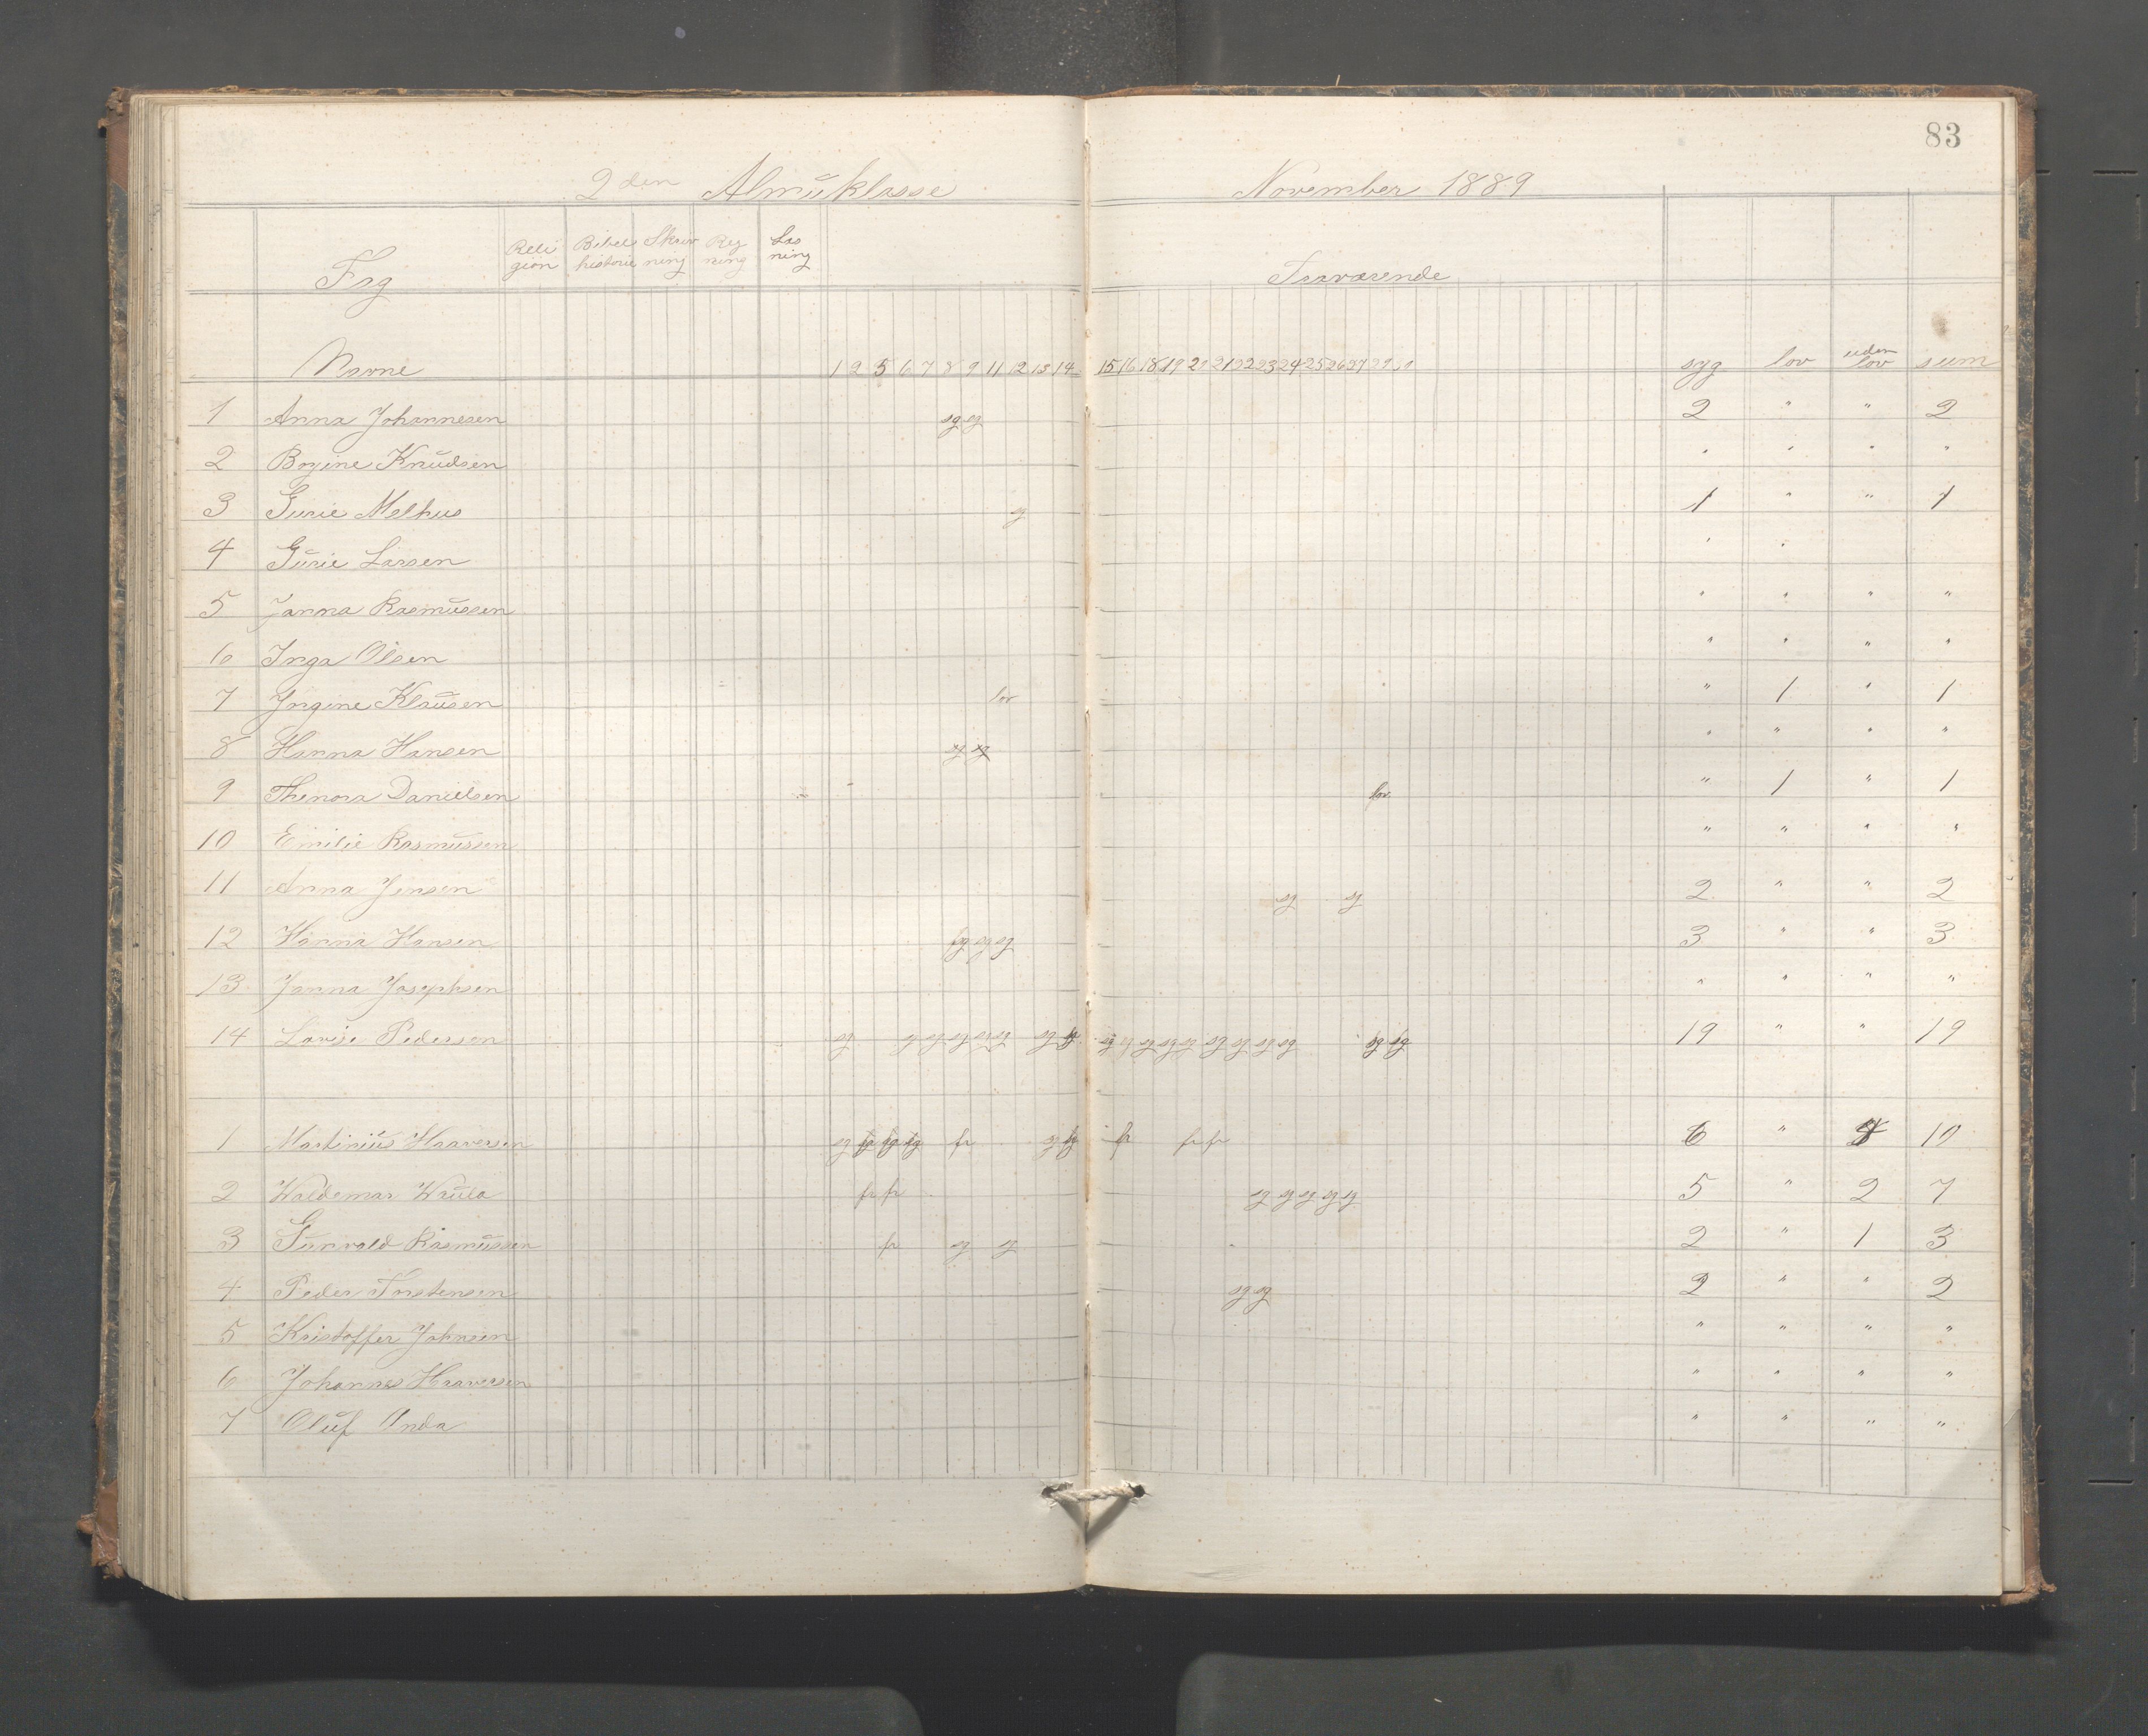 83
2den Almuklasse November 1889
Fag Religion Bibelhistorie Skrivning Regning Læsning Fraværende
Navne 1 2 5 6 7 8 9 11 12 13 14 15 16 18 19 20 21 22 23 24 25 26 27 29 syg lov uden lov sum
1 Anna Johannesen sg sg 2 " " 2
2 Bergine Knudsen " " " "
3 Gurie Melhus sg 1 " " 1
4 Gurie Larsen " "
5 Janna Rasmussen " " " "
6 Inga Olsen " " " "
7 Jorgine Klausen lov " 1 " 1
8 Hanna Hansen sg sg " " " "
9 Thenora Danielsen lov " 1 " 1
10 Emilie Rasmussen " " " "
11 Anna Jensen sg sg 2 " " 2
12 Hanna Hansen sg sg sg 3 " " 3
13 Janna Josephsen " " " "
14 Lovise Pedersen sg sg sg sg sg sg sg sg sg sg sg sg sg sg sg sg sg sg sg 19 " " 19
1 Martinius Haaversen sg sg sg sg fr sg sg fr fr fr 6 " 4 10
2 Waldemar Waula fr fr sg sg sg sg sg 5 " 2 7
3 Gunvald Rasmussen fr sg sg 2 " 1 3
4 Peder Torstensen sg sg 2 " " 2
5 Kristoffer Johnsen " " " "
6 Johannes Haaversen " " " "
7 Oluf Anda " " " "